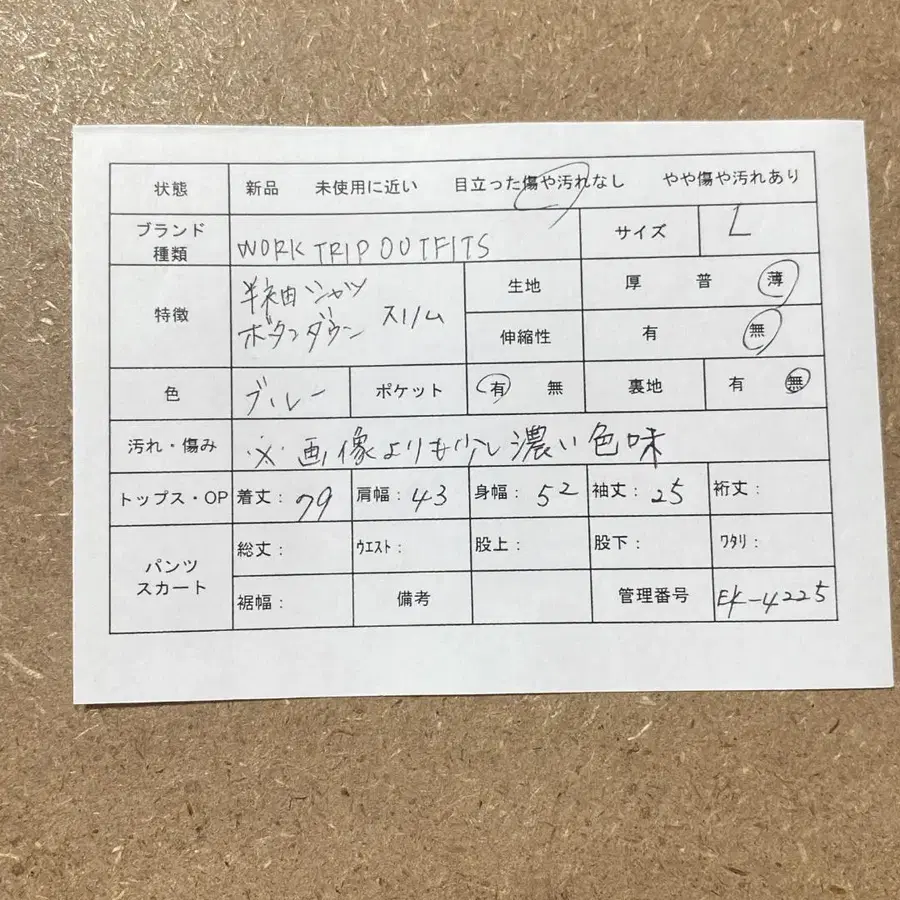 状態 新品 未使用に近い 目立った傷や汚れなし やや傷や汚れあり
ブランド種類 WORK TRIP OUTFITS サイズ L
特徴 半袖シャツ ボタンダウン スリム
生地 厚 普 薄
伸縮性 有 無
色 ブルー ポケット 有 無 裏地 有 無
汚れ・傷み ※画像よりも少し濃い色味
トップス・OP 着丈: 79 肩幅: 43 身幅: 52 袖丈: 25 裄丈:
パンツスカート 総丈: ウエスト: 股上: 股下: ワタリ:
裾幅: 備考 管理番号 EK-4225